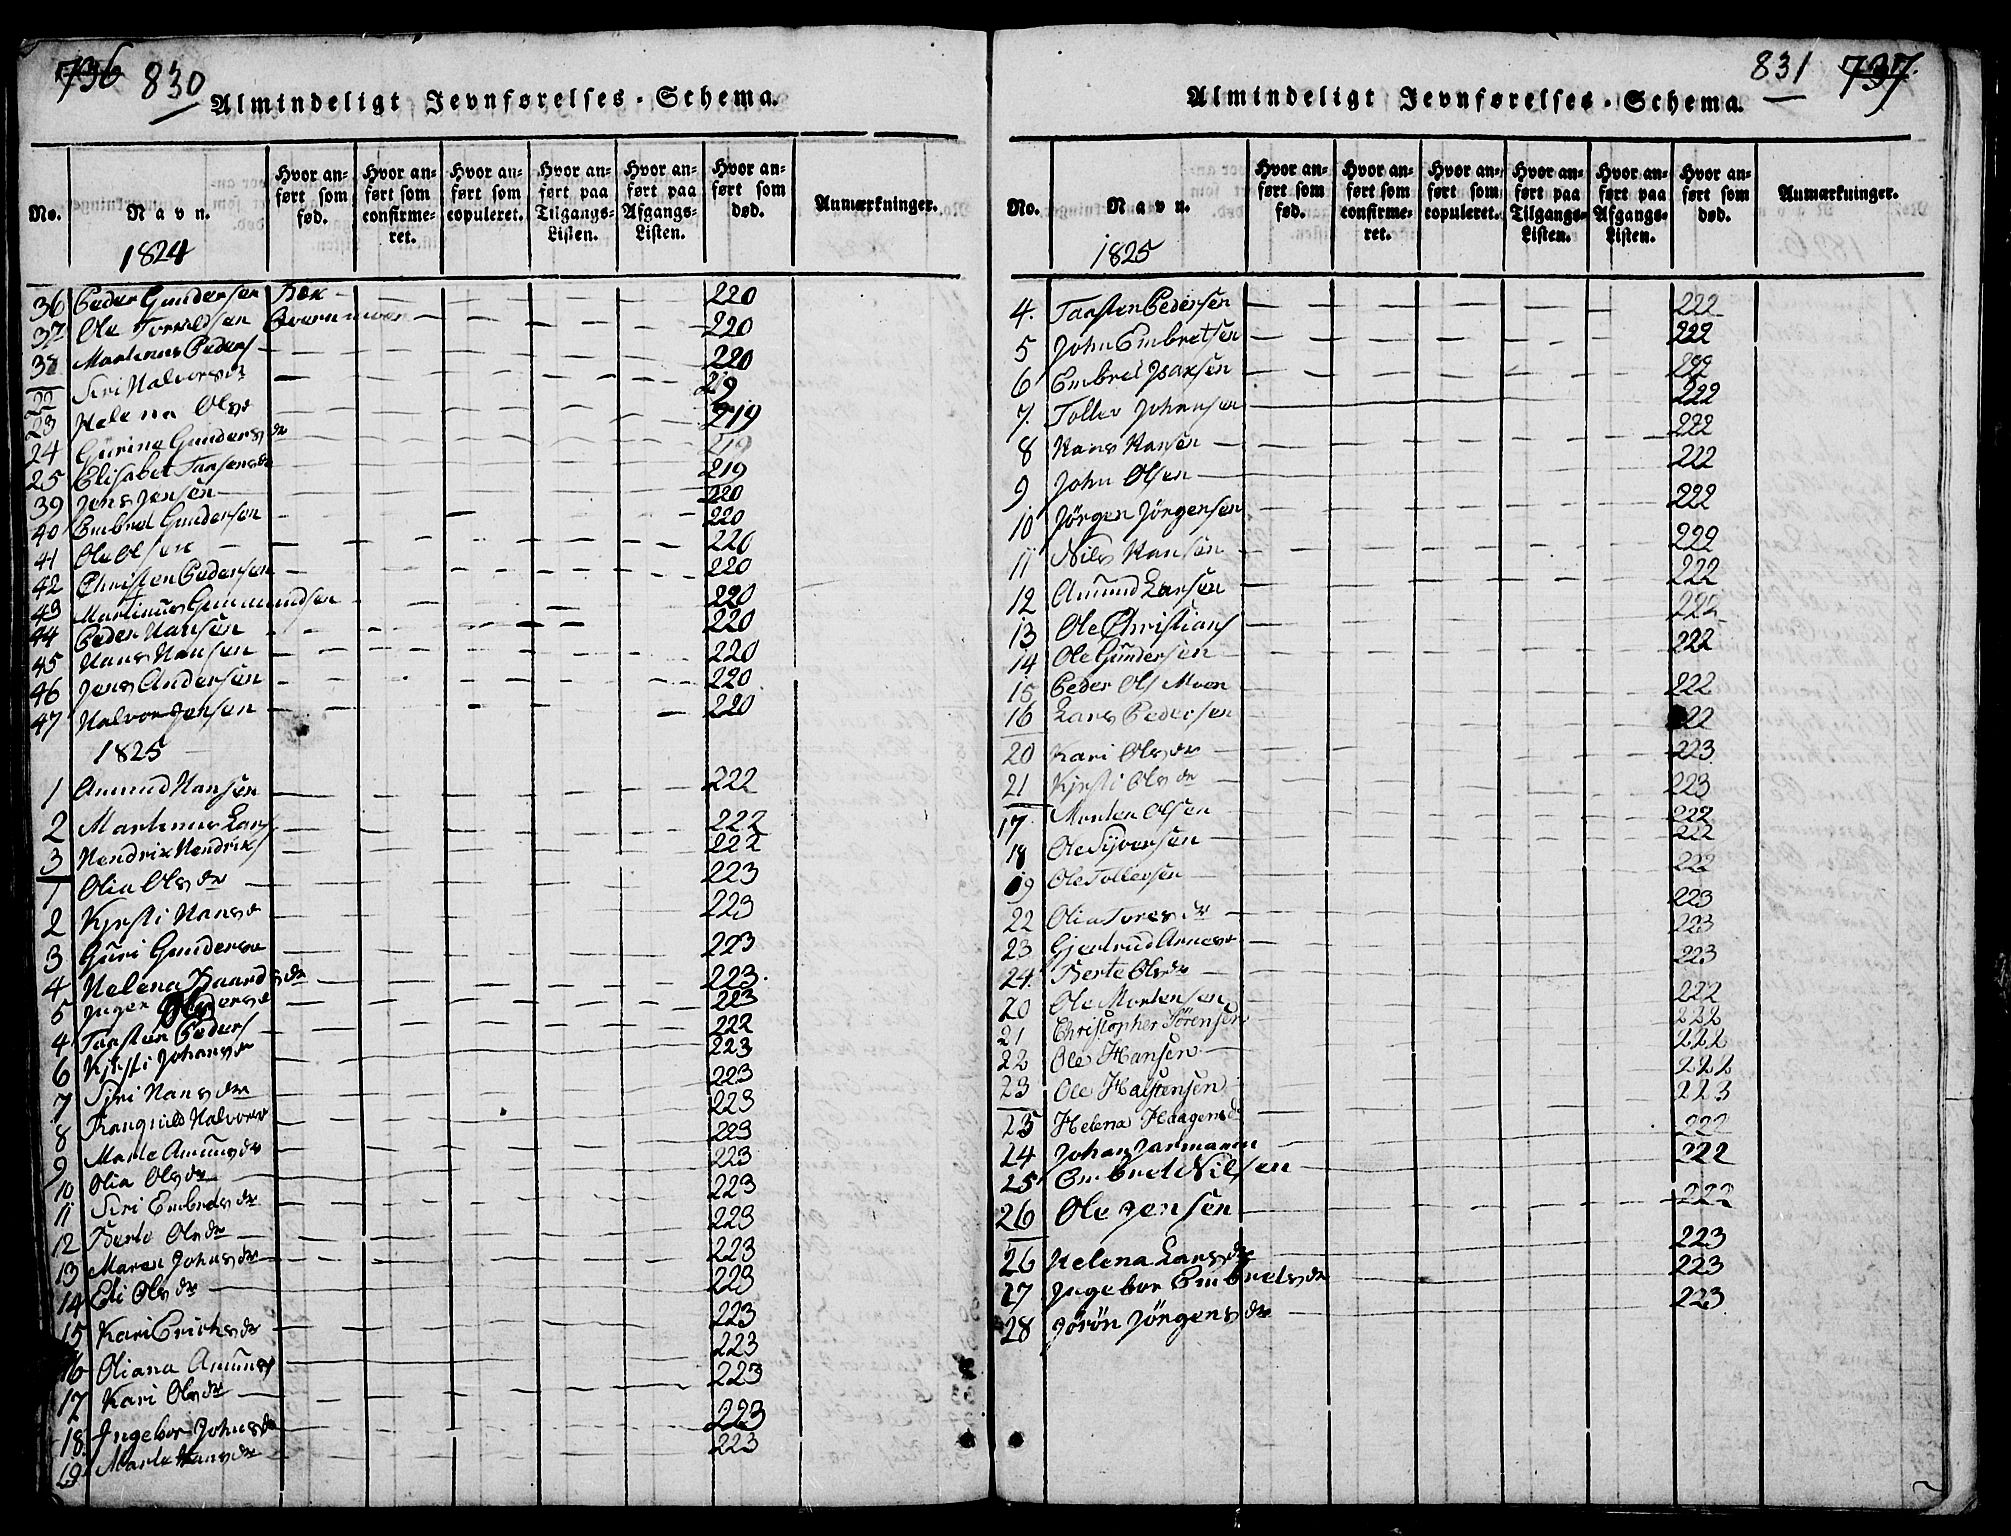 736 830
Almindeligt Jevnførelses-Schema.
No.
Navn.
Hvor an-
ført som
fød.
Hvor an-
ført som
confirme-
ret.
Hvor an-
ført som
copuleret.
Hvor an-
ført paa
Tilgangs-
Listen.
Hvor an-
ført paa
Afgangs-
Listen.
Hvor an-
ført som
død.
Anmærkninger.
1824
36 Peder Gundersen 220
37 Ole 220
38 Martinus Peders 220
22 Siri Halvorsdr 219
23 Helena Olsdr 219
24 Gurine Gundersdr 219
25 Elisabet Tarsensdr 219
39 Jens Jensen 220
40 Embret Gundersen 220
41 Ole Olsen 220
42 Christen Pedersen 220
43 Martinus Gunmundsen 220
44 Peder Hansen 220
45 Hans Hansen 220
46 Jens Andersen 220
47 Halvor Jensen 220
1825
1 Amund Hansen 222
2 Martinus Lars 222
3 Hendrik Hendriks 222
1 Olia Olsdr 223
2 Kjrsti Hansdr 223
3 Guri Gundersdr 223
4 Helena Baardsdr 223.
5 Inger 223
4 Tarsten Peders 222
6 Kjrsti Johansdr 223
7 Siri Hansdr 223
8 Rangnild Halvors 223
9 Marte Amunsdr 223
10 Olia Olsdr 223
11 Siri Embretsdr 223
12 Berte Olsdr 223
13 Maren Johnsdr 223
14 Eli Olsdr 223
15 Kari Erichsdr 223
16 Oliana Amuns 223
17 Kari Olsdr 223
18 Ingebor Johnsdr 223
19 Marte Hansdr 223
831 737.
Almindeligt Jevnførelses-Schema.
No.
Navn.
Hvor an-
ført som
fød.
Hvor an-
ført som
confirme-
ret.
Hvor an-
ført som
copuleret.
Hvor an-
ført paa
Tilgangs-
Listen.
Hvor an-
ført paa
Afgangs-
Listen.
Hvor an-
ført som
død.
Anmærkninger.
1825
4. Tarsten Pedersen 222
5 John Embretsen 222
6 Embret Isaksen 222
7. Toller Johansen 222
8 Hans Hansen 222
9 John Olsen 222
10 Jörgen Jörgensen 222
11 Nils Hansen 222
12 Amund Larsen 222
13 Ole Christians 222
14 Ole Gundersen 222
15 Peder Ols Moen 222
16 Lars Pedersen 222
20 Kari Olsdr 223
21 Kjrsti Olsdr 223
17 Morten Olsen 222
18 Ole Syversen 222
19 Ole Tollersen 222
22 Olia Toresdr 223
23 Gjertrud Arnesdr 223
24. Berte Olsdr 223
20 Ole Mortensen 222
21 Christopher Sørensen 222
22 Ole Hansen 222
23 Ole Halstensen 222
25 Helena Haagensdr 223
24 Johan Jarmann 222
25 Embret Nilsen 222
26 Ole Jensen 222
26 Helena Larsdr 223
27 Ingebor Embretsdr 223
28 Jörön Jörgensdr 223